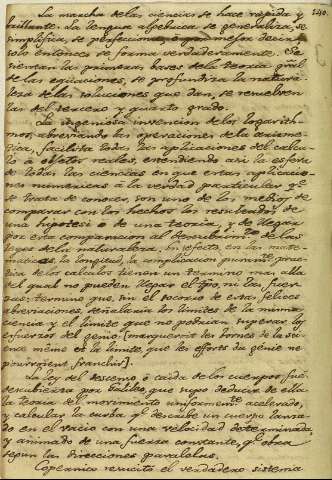 La marcha de las ciencias se hace rápida y
brillante. La lengua algebraica se generaliza, se
simplifica, se perfecciona, o por mejor decir, se
forma verdaderamente. Se
sientan las primeras bases de la teoria gral
de las equaciones, se profundiza la natura-
leza de las soluciones que dan, se resuelven
las del tercero y quarto grado.
La ingeniosa invencion de los logarith-
mos, abreviando las operaciones de la arisme-
tica, facilita todas las aplicaciones del calcu-
lo á objetos reales, extendiendo asi la esfera
de todas las ciencias en que estas aplicacio-
nes numericas á la verdad particular qe
se trata de conocer, son uno de los medios de
comparar con los hechos los resultados de
una hipotesi ó de una teoria, y de llegar
por esta comparacion al descubrimto de las
leyes de la naturaleza. En efecto, en las mate-
maticas, la longitud, la complicacion puramte prac-
tica de los calculos tienen un termino mas allá
del qual no pueden llegar el tpo, ni las fuer-
zas; termino que, sin el socorro de estas felices
abreviaciones, señalaria los limites de la misma
ciencia y el limite que no podrian superar los
esfuerzos del genio [marqueroit les bornes de la sci-
ence même et la limite, que les efforts du génie ne
pourroient franchir].
La ley del descenso ó caida de los cuerpos fue
descubierta por Galileo, que supo deducir de ella
la teoria del movimiento uniformemte acelerado,
y calcular la curba qe describe un cuerpo lanza-
do en el vacio con una velocidad determinada,
y animado de una fuerza constante, qe obra
segun las direcciones paralelas.
Copernico resucita el verdadero sistema